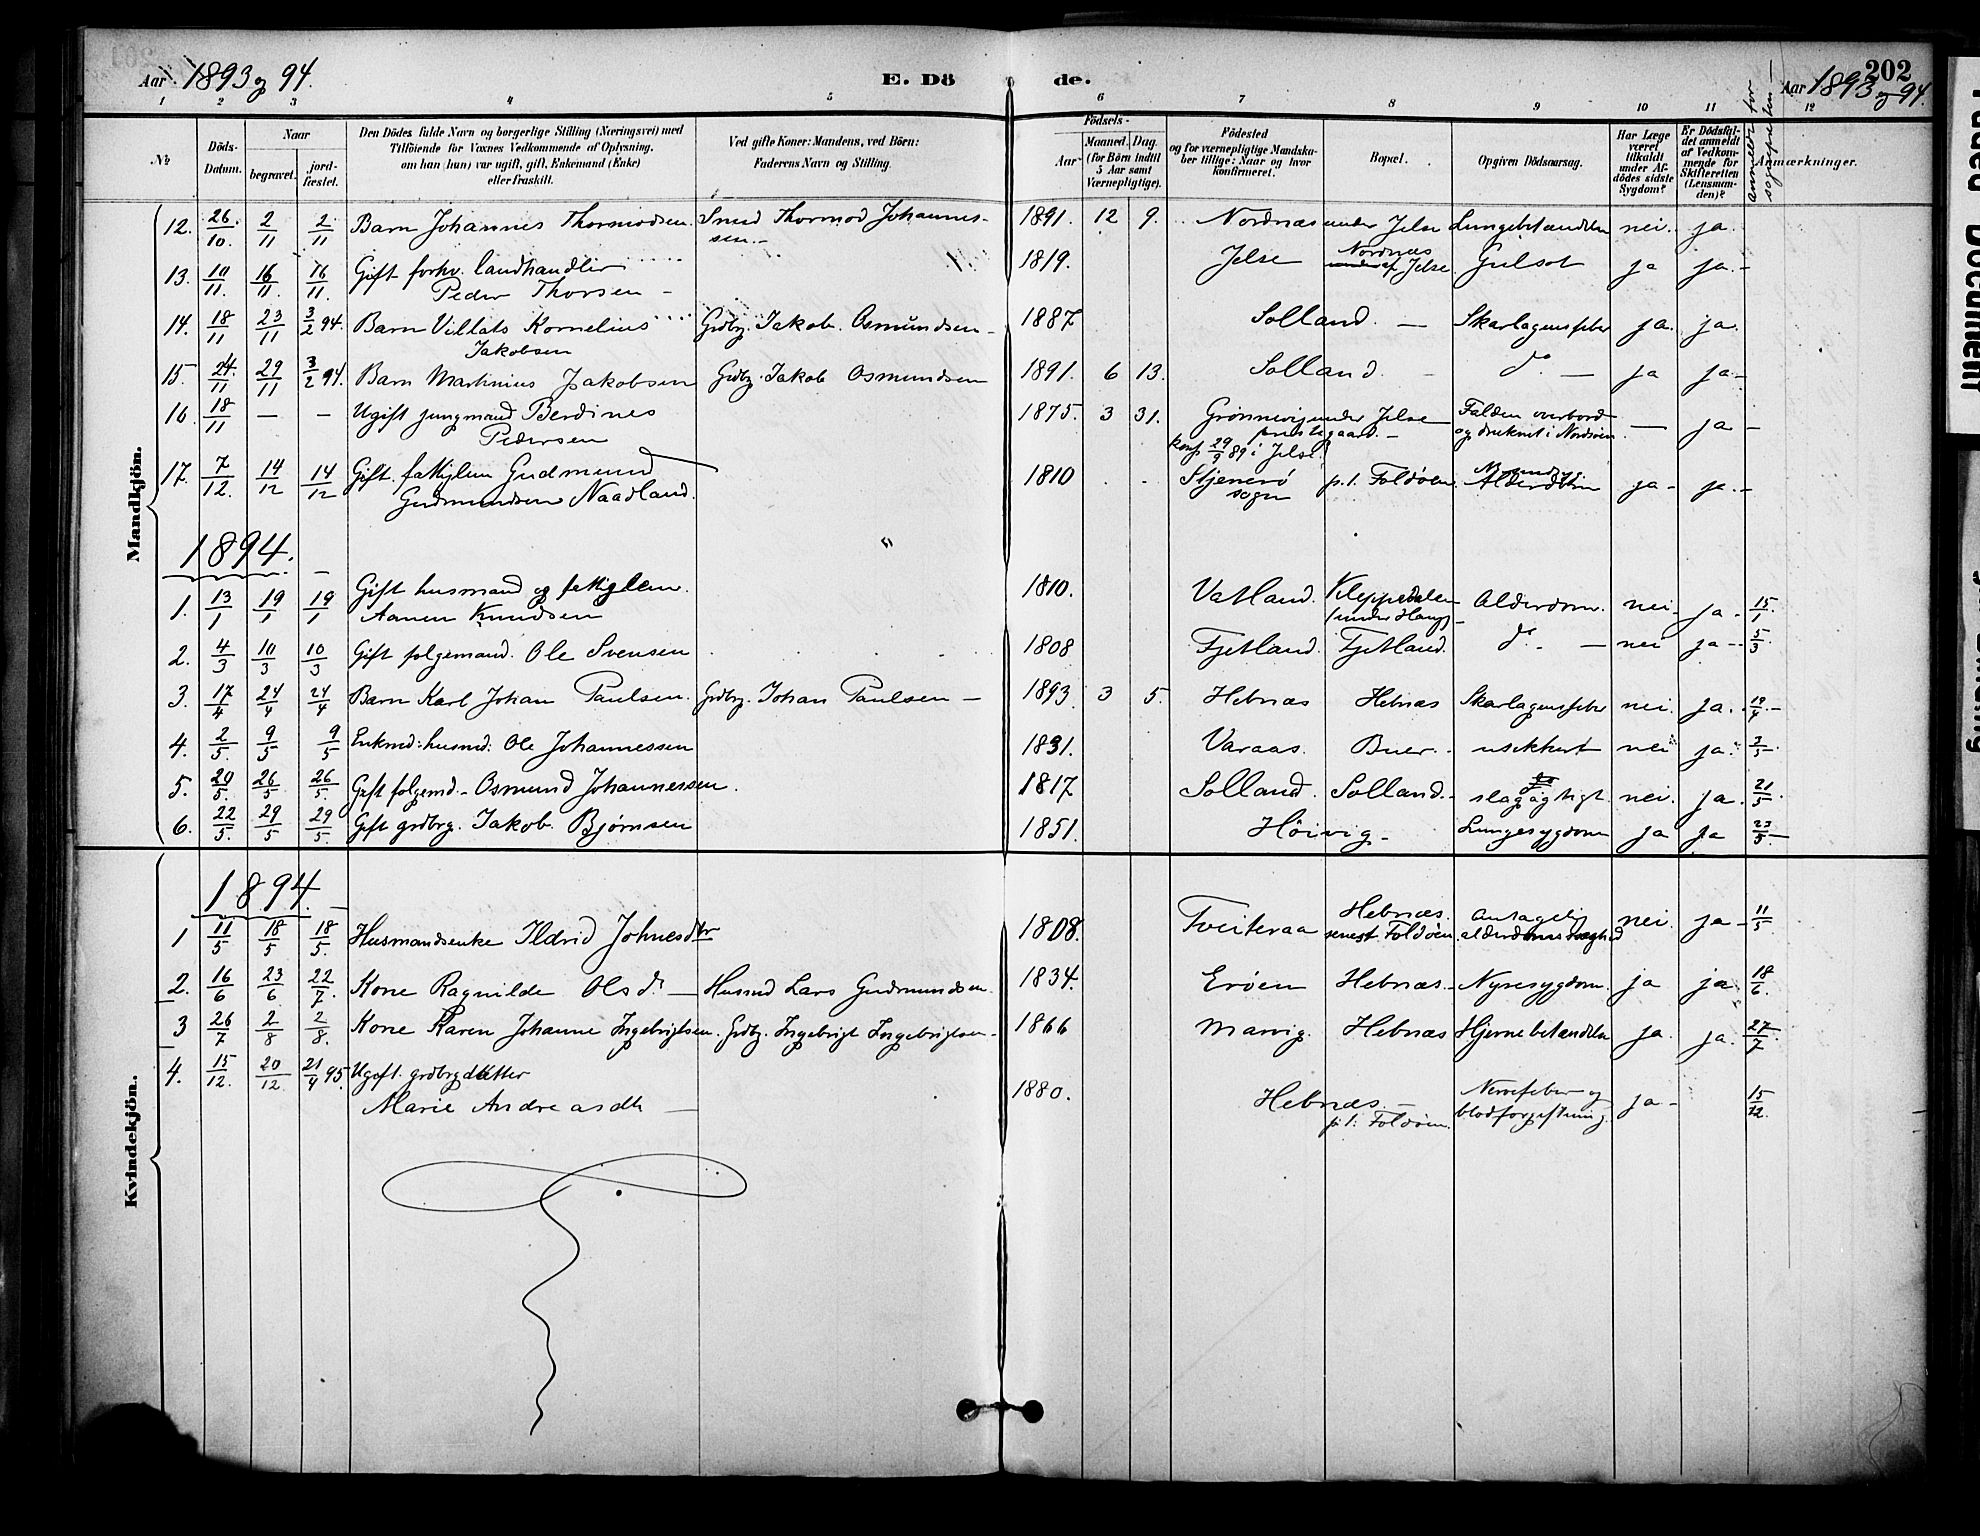 Aar 1893 og 94.
E. Dö
de.
202
Aar 1893 og 94.
1 2 3 4 5 6 7 8 9 10 11 12
No
Döds-Datum.
Naar
begravet.
jordfæstet.
Den Dödes fulde Navn og borgerlige Stilling (Næringsvei) med Tilföiende for Voxnes Vedkommende af Oplysning, om han (hun) var ugift, gift, Enkemand (Enke) eller fraskilt.
Ved gifte Koner: Mandens, ved Börn: Faderens Navn og Stilling.
Födsels-
Aar
Maaned. Dag.
(for Börn indtil 5 Aar samt Værnepligtige).
Födested
og for værnepligtige Mandskaber tillige: Naar og hvor konfirmeret.
Bopæl.
Opgiven Dödsaarsag.
Har Læge været tilkaldt under Afdödes sidste Sygdom?
Er Dödsfaldet anmeldt af Vedkommende for Skifteretten (Lensmanden)?
anmeldt for sognepresten
Anmærkninger.
Mandkjön.
12. 26/10. 2/11 2/11 Barn Johannes Thormodsen. Smed Thormod Johannessen. 1891. 12 9. Nordnæs under Jelse Lungebetændelse nei. ja.
13. 10/11. 16/11. 16/11. Gift forhv. landhandler Peder Thorsen 1819. Jelse Nordnæs af Jelse Gulsot ja ja.
14. 18/11 23/11 3/2 94. Barn Villats Kornelius Jakobsen Grdbg. Jakob Osmundsen 1887 Solland. Skarlagensfeber ja. ja.
15. 24./11 29/11 3/2 94. Barn Martinius Jakobsen Grdbg. Jakob Osmundsen 1891. 6 13. Solland. do ja ja.
16. 18/11 — — Ugift jungmand Berdines Pedersen 1875. 3 31. Grønnevig under Jelse prestegaard. Falden overbord og druknet i Nordsøen. — ja
konf 29/9 89 i Jelse.
17. 7/12. 14/12 14/12 Gift fattiglem Gudmund Gudmundsen Naadland. 1810 Stjenerø sogn p. t. Foldøen. Alderdom ja ja.
1894.
1. 13/1 19/1 19/1 Gift husmand og fattiglem. Aanen Knudsen 1810. Vatland. Kleppedalen under Haug Alderdom. nei ja. 15/1
2. 4/3 10/3 10/3 Gift folgemand. Ole Svensen 1808 Fjetland. Fjetland. do nei ja 5/3
3. 17/4 24/4 24/4 Barn Karl Johan Paulsen. Grdbrg. Johan Paulsen 1893 3 5. Hebnæs Hebnæs Skarlagensfeber nei. ja. 19/4
4. 2/5. 9/5 9/5 Enkmd: husmd: Ole Johannessen 1831. Varaas. Buer. usikkert nei ja. 3/5
5. 20/5. 26/5 26/5. Gift folgemd. Osmund Johannessen. 1817 Solland. Solland. slagagtigt nei. ja. 21/5
6. 22/5. 29/5 29/5. Gift grdbrg. Jakob Bjørnsen 1851. Höivig. Lungesygdom ja ja 23/5.
Kvindekjön.
1894.
1 11/5 18/5 18/5. Husmandsenke Ildrid Johnesdtr 1808. Tveiteraa Hebnæs. senest Foldøen. antagelig alderdomssvaghed nei. ja 11/5
2. 16/6 23/6 22/7. Kone Ragnilde Olsdr. Husmd Lars Gudmundsen. 1834. Erøen Hebnæs. Nyresygdom. ja ja 18/6.
3 26/7 2/8 2/8. Kone Karen Johanne Ingebrigtsen. Grdbg. Ingebrigt Ingebrigtsen 1866 Marvig. Hebnæs Hjernebetændelse ja. ja. 27/7
4. 15/12. 20/12. 21/4 95. Ugift. grdbrgdatter Marie Andreasdtr 1880. Hebnæs. p. t: Foldøen. Nervefeber og blodforgiftning. ja 15/12.